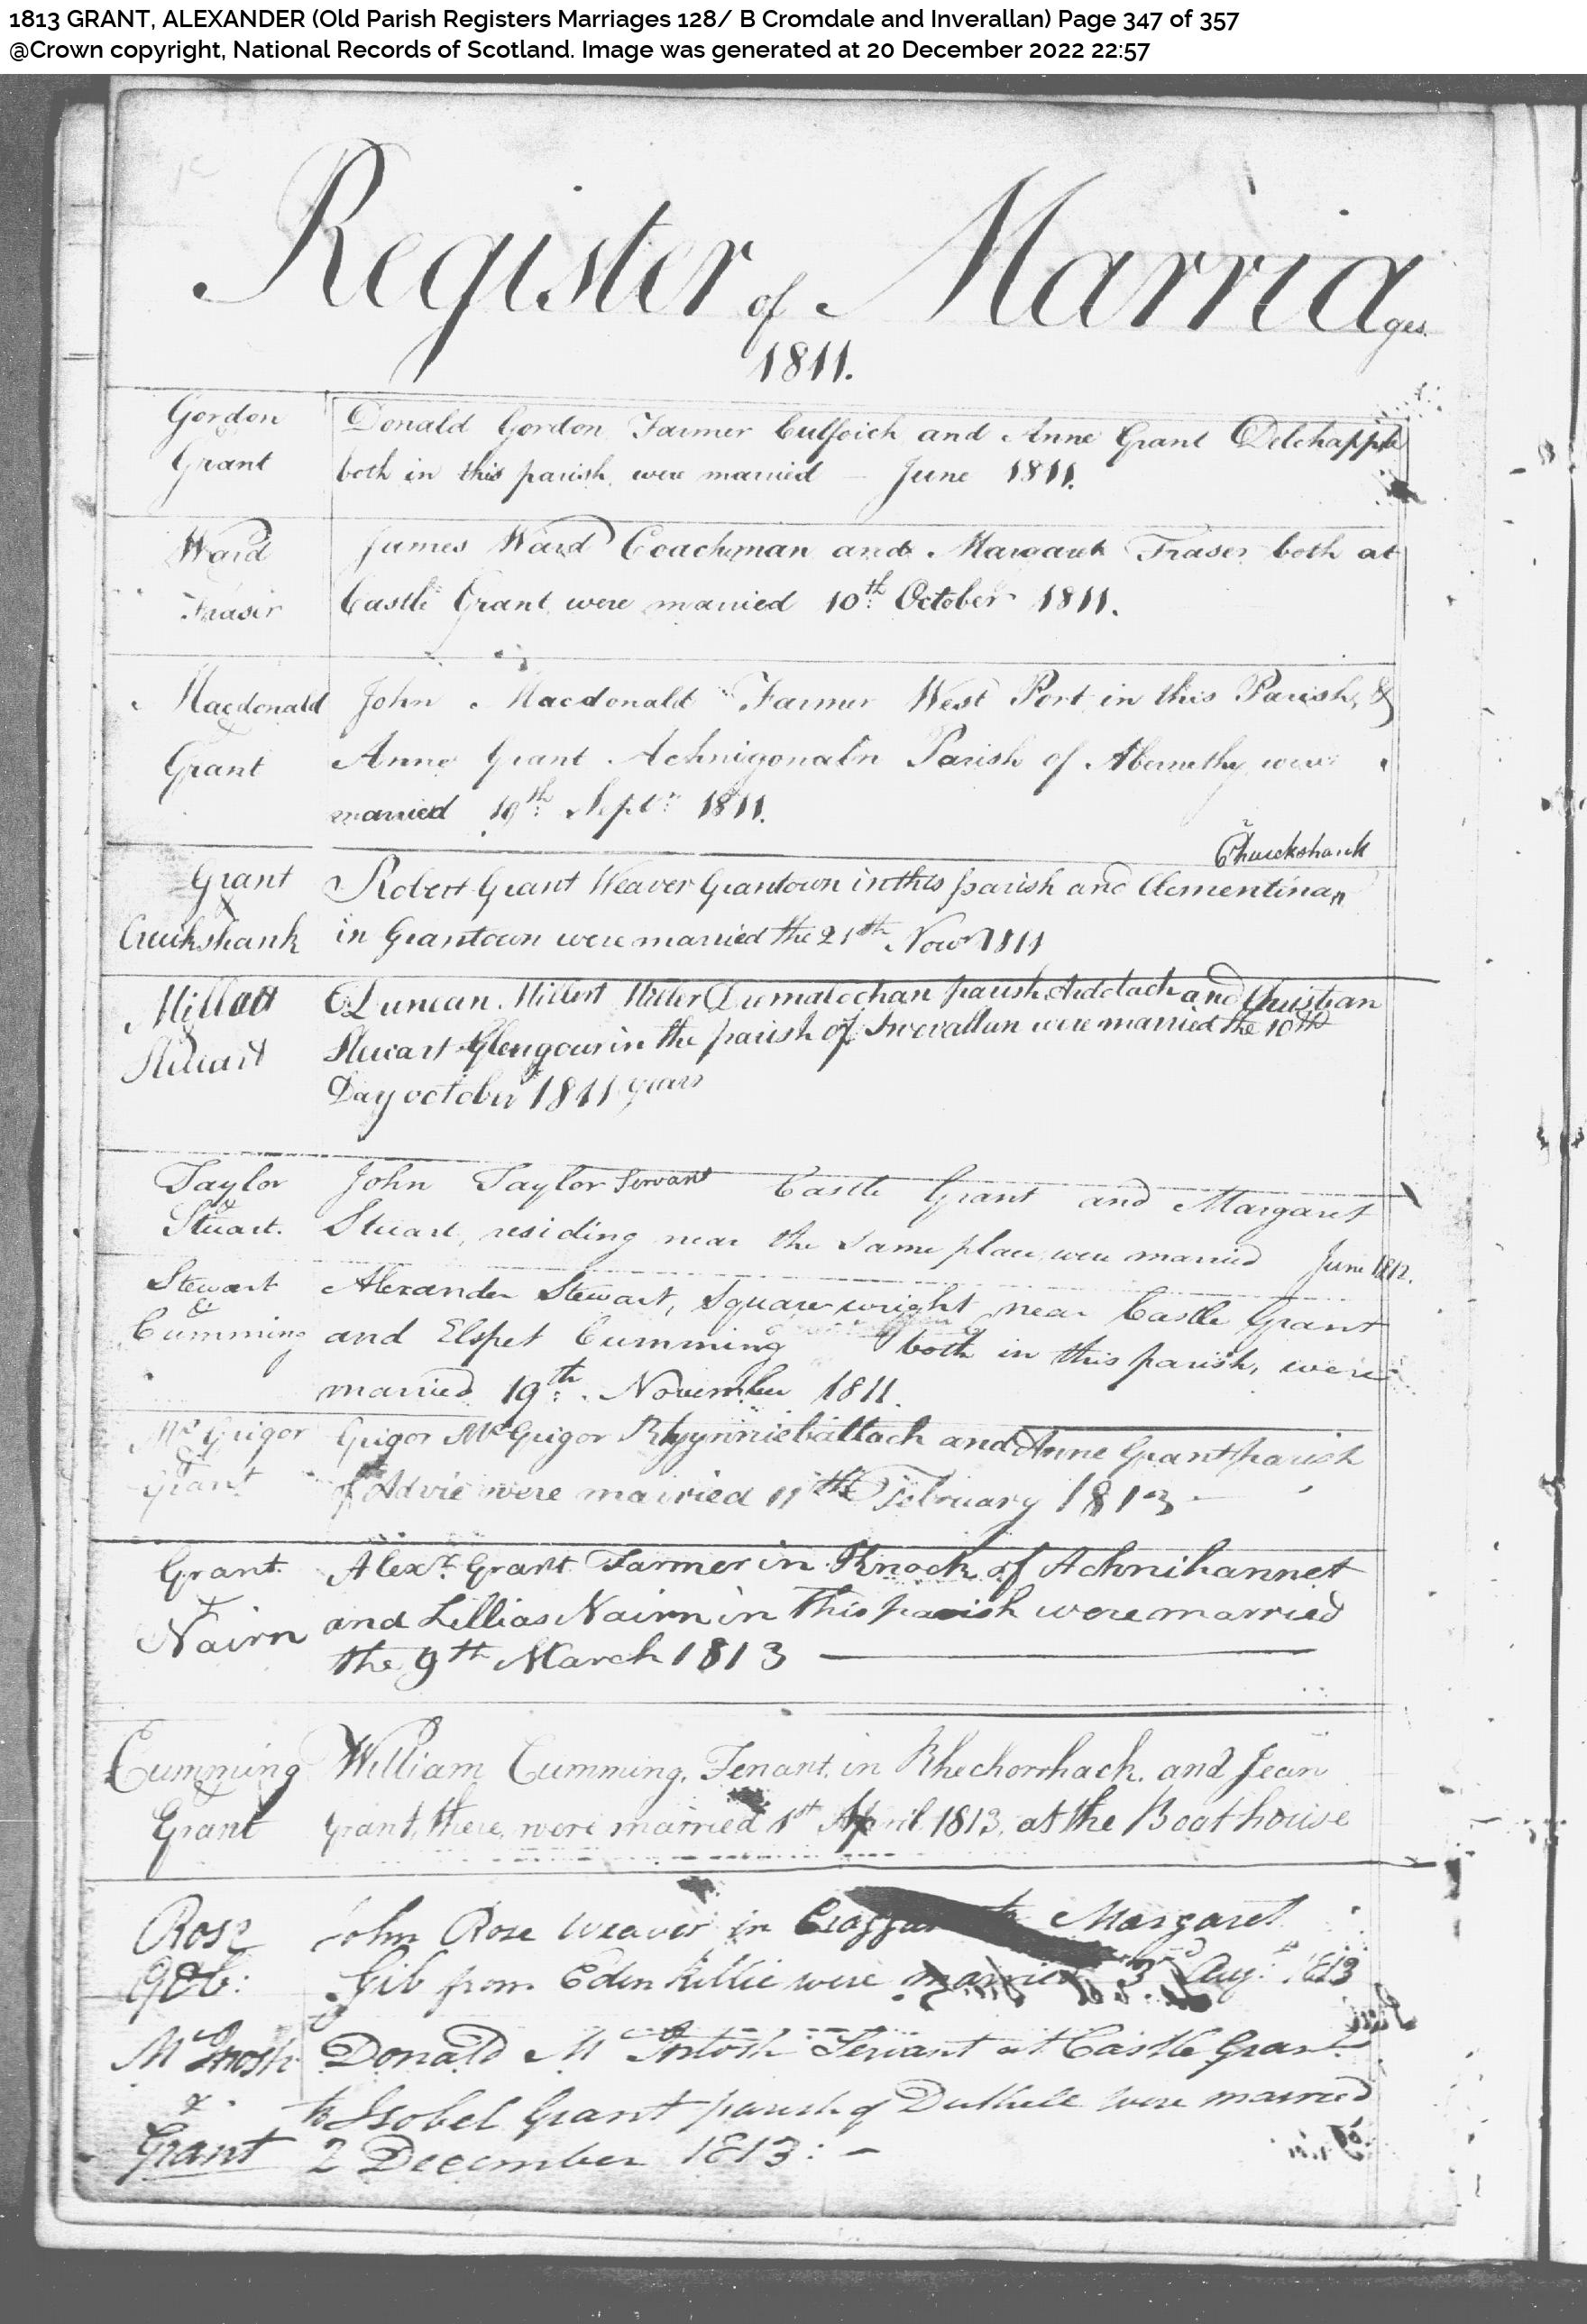 1813 GRANT, ALEXANDER (Old Parish Registers Marriages 128/ B Cromdale and Inverallan) Page 347 of 357
@Crown copyright, National Records of Scotland. Image was generated at 20 December 2022 22:57
Register of Marriages
1811.
Gordon
&
Grant
Donald Gordon Farmer Culfoich and Anne Grant Delchapple
both in this parish were married – June 1811.
Ward
Fraser
James Ward Coachman and Margaret Fraser both at
Castle Grant were married 10th October 1811.
Macdonald
&
Grant
John Macdonald Farmer West Port in this Parish, &
Anne Grant Parish of Abernethy were
married 19th Septr 1811.
Grant
&
Cruikshank
Chruckshank
Robert Grant Weaver Grantown in this parish and Clementina
in Grantown were married the 21th Novr 1811
&
Stuart
Duncan Miller parish and Christian
Stuart Glengour in the parish of Inverallan were married the 10th
Day october 1811 years
Taylor
&
Stuart.
John Taylor Servant Castle Grant and Margaret
Stuart, residing near the same place were married June 1812.
Stewart
&
Cumming
Alexander Stewart, Squarewright near Castle Grant
and Elspet Cumming both in this parish, were
married 19th. November 1811.
Mc Grigor
&
Grant
Grigor Mc Grigor Rhynnieballach and Anne Grant parish
of Advie were married 11th February 1813 –
Grant
&
Nairn
Alexr. Grant Farmer in Knock of Achnihannet
and Lillias Nairn in this parish were married
the 9th March 1813
Cumming
&
Grant
William Cumming, Tenant, in Rhechorrhack, and Jean
Grant, there, were married 1st April 1813, at the Boathouse
Rose
John Rose Weaver in Margaret
Gib from Edenkillie were married 3d Augt 1813
Mc Intosh
&
Grant
Donald Mc Intosh Servant at Castle Grant
to Isobel Grant parish of Duthill were married
2 December 1813: –